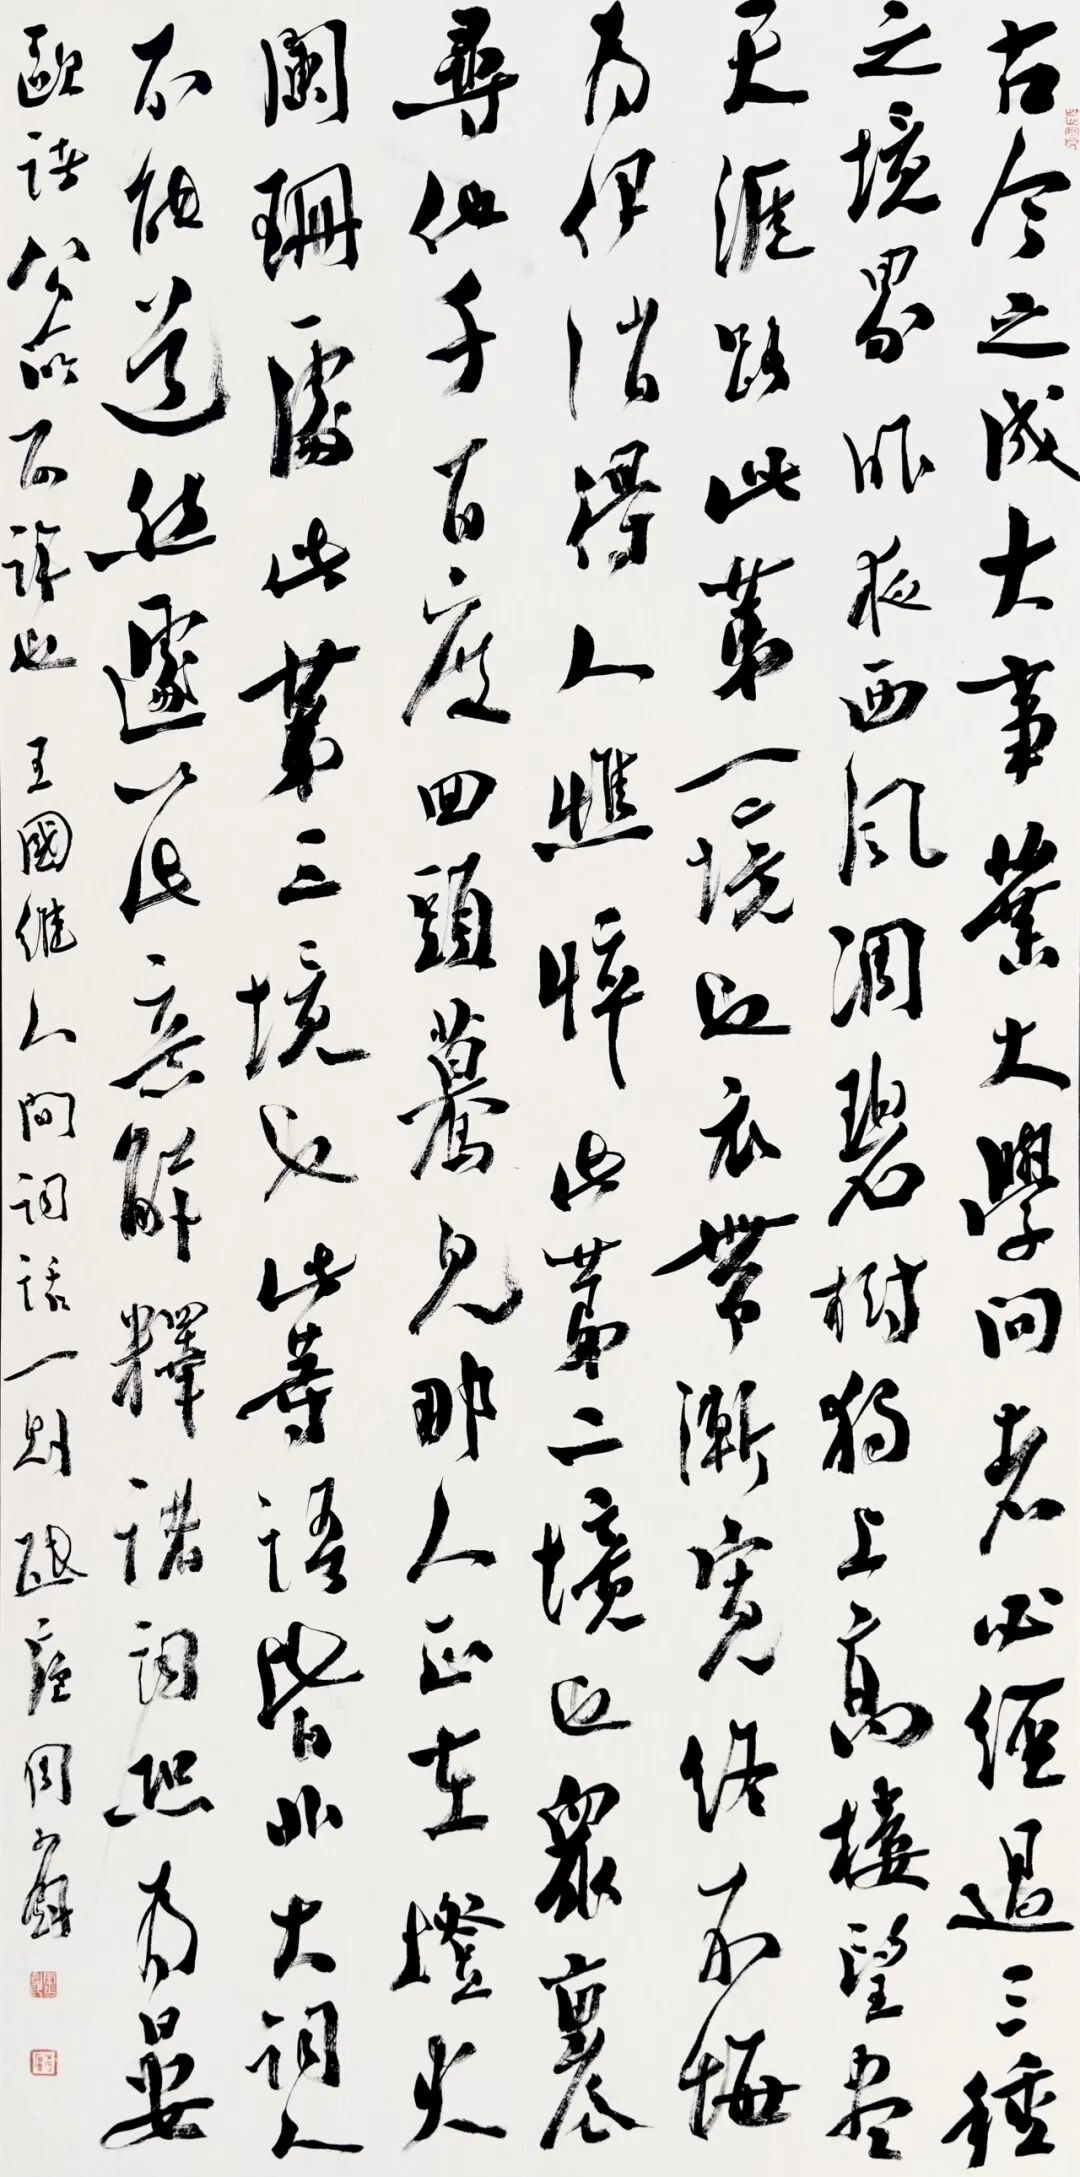 古今之成大事業大學問者必經過三種
之境界昨夜西風凋碧樹獨上高樓望盡
天涯路此第一境也衣帶漸寬終不悔
為伊消得人憔悴此第二境也眾裏
尋他千百度回頭驀見那人正在燈火
闌珊處此第三境也此等語皆非大詞人
不能道然遽以此意解釋諸詞恐為晏
歐諸公所不許也 王國維人間詞話一則 周